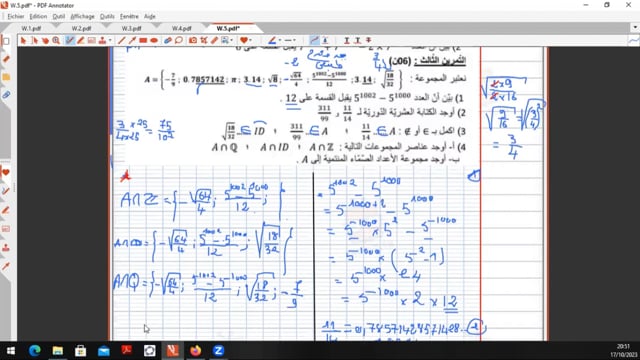 W.5.pdf* - PDF Annotator
Fichier Édition Affichage Insérer Document Outil Fenêtre Aide
W.1.pdf W.2.pdf W.3.pdf W.4.pdf W.5.pdf*
التمرين الثالث : (06ن)
نعتبر المجموعة :
A = {-7/9 ; 0.7857142 ; π ; 3.14 ; √8 ; -√64/4 ; (5^1002 - 5^1000)/12 ; 3.14 ; √(18/32)}
1) بيّن أنّ العدد 5^1002 - 5^1000 يقبل القسمة على 12.
2) أوجد الكتابة العشريّة الدوريّة لـ 11/14 و 311/99
3) أكمل بـ ∈ أو ∉ : 11/14 ∈ A ; 311/99 ... A ; √(18/32) ∈ ID
4) أ- أوجد عناصر المجموعات التالية : A∩ℤ ; A∩ID ; A∩ℚ
ب- أوجد مجموعة الأعداد الصمّاء المنتمية إلى A.
3/4 × 25/25 = 75/10²
√(2×9 / 2×16)
√(9/16) = √(3/4)²
= 3/4
A∩ℤ = {-√64/4 ; (5^1002 - 5^1000)/12 ;
A∩ID = {-√64/4 ; (5^1002 - 5^1000)/12 ; √(18/32)
A∩Q = {-√64/4 ; (5^1002 - 5^1000)/12 ; √(18/32) ; -7/9
= 5^1002 - 5^1000
= 5^1000+2 - 5^1000
= 5^1000 × 5² - 5^1000
= 5^1000 × (5² - 1)
= 5^1000 × 24
= 5^1000 × 2 × 12
11/14 = 0,78571428571428...
20:51
17/10/2023